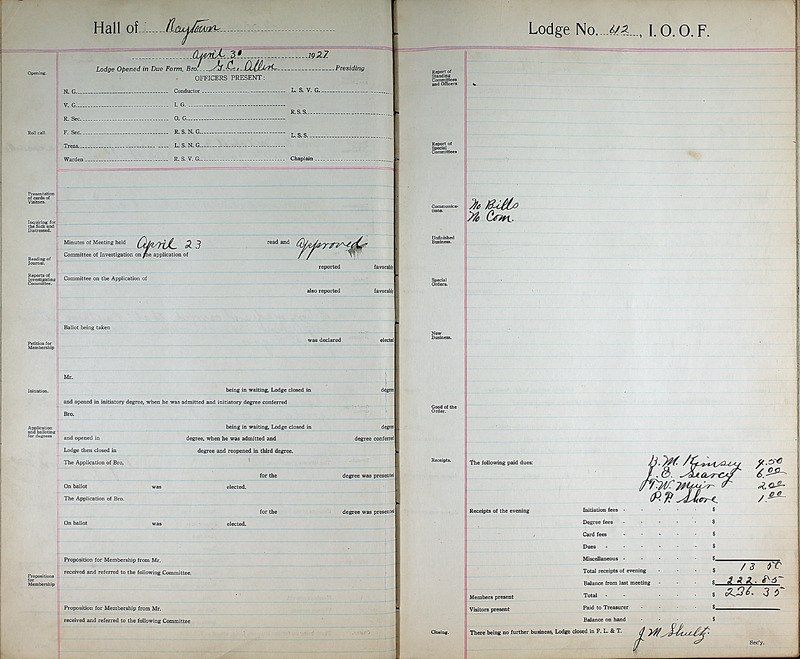 Hall of Raytown
April 30 1927
Lodge Opened in Due Form, Bro. G. C. Allen Presiding
OFFICERS PRESENT:
Opening.
N. G. Conductor L. S. V. G.
V. G. I. G.
R. S. S.
R. Sec. O. G.
Roll call.
F. Sec. R. S. N. G.
L. S. S.
Treas. L. S. N. G.
Warden R. S. V. G. Chaplain
Presentation
of cards of
Visitors.
Inquiring for
the Sick and
Distressed.
Minutes of Meeting held April 23 read and approved
Reading of
Journal.
Committee of Investigation on the application of
reported favorable
Reports of
Investigating
Committee.
Committee on the Application of
also reported favorable
Ballot being taken
Petition for
Membership
was declared elected
Mr.
Initiation.
being in waiting, Lodge closed in degree
and opened in initiatory degree, when he was admitted and initiatory degree conferred
Bro.
Application
and balloting
for degrees
being in waiting, Lodge closed in degree
and opened in degree, when he was admitted and degree conferred
Lodge then closed in degree and reopened in third degree.
The Application of Bro.
for the degree was presented
On ballot was elected.
The Application of Bro.
for the degree was presented
On ballot was elected.
Propositions
for
Membership
Proposition for Membership from Mr.
received and referred to the following Committee.
Proposition for Membership from Mr.
received and referred to the following Committee
Lodge No. 42, I. O. O. F.
Report of
Standing
Committees
and Officers
Report of
Special
Committees
Communica-
tions.
No Bills
No Com.
Unfinished
Business.
Special
Orders.
New
Business.
Good of the
Order.
Receipts.
The following paid dues:
B. M. Kimsey 4.50
J. E. Searcy 6.00
T. W. Muir 2.00
P. P. Shore 1.00
Receipts of the evening Initiation fees - - - - - $
Degree fees - - - - - $
Card fees - - - - - $
Dues - - - - - $
Miscellaneous - - - - - $
Total receipts of evening - - - $ 13 50
Balance from last meeting - - - $ 222.85
Members present Total - - - - - $ 236.35
Visitors present Paid to Treasurer - - - - $
Balance on hand - - - $
Closing.
There being no further business, Lodge closed in F. L. & T. J M Shultz. Sec'y.